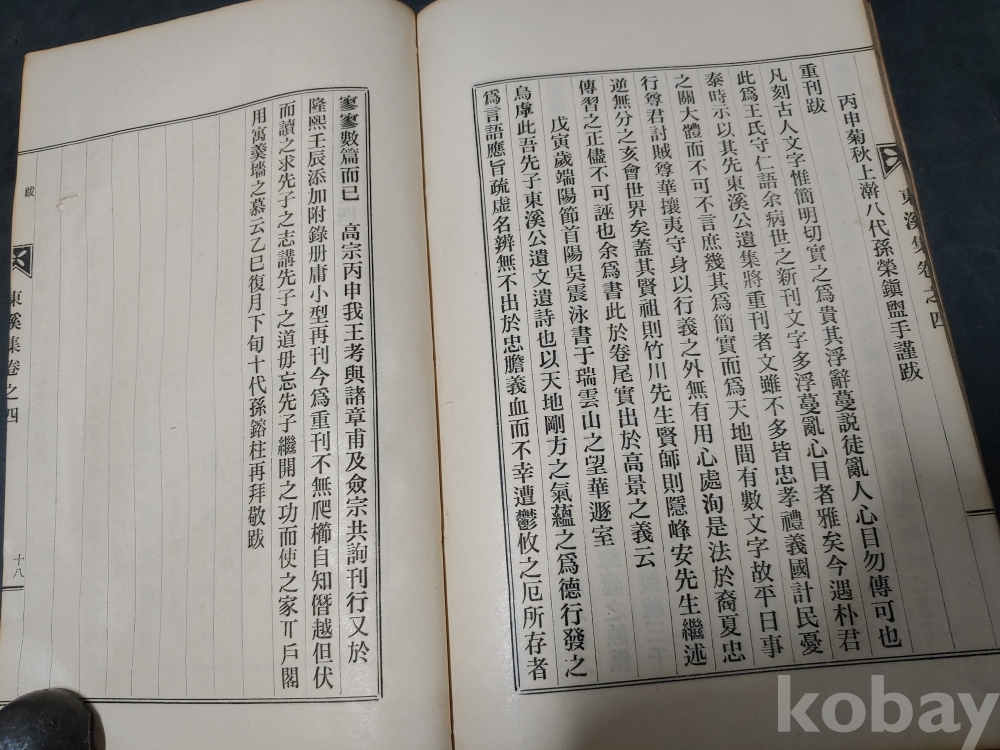 東溪集卷之四
丙申菊秋上澣八代孫榮鎭盥手謹跋
重刊跋
凡刻古人文字惟簡明切實之爲貴其浮辭蔓説徒亂人心目勿傳可也
此爲王氏守仁語余病世之新刊文字多浮蔓亂心目者雅矣今遇朴君
泰時示以其先東溪公遺集將重刊者文雖不多皆忠孝禮義國計民憂
之關大體而不可不言庶幾其爲簡實而爲天地間有數文字故平日事
行尊君討賊尊華攘夷守身以行義之外無有用心處洵是法於裔夏忠
逆無分之亥會世界矣蓋其賢祖則竹川先生賢師則隱峰安先生繼述
傳習之正儘不可誣也余爲書此於卷尾實出於高景之義云
戊寅歲端陽節首陽吳震泳書于瑞雲山之望華遯室
烏虖此吾先子東溪公遺文遺詩也以天地剛方之氣蘊之爲德行發之
爲言語應旨疏虛名辨無不出於忠膽義血而不幸遭鬱攸之厄所存者
寥寥數篇而已 高宗丙申我王考與諸章甫及僉宗共詢刊行又於
隆熙壬辰添加附錄册庸小型再刊今爲重刊不無爬櫛自知僭越但伏
而讀之求先子之志講先子之道毋忘先子繼開之功而使之家丌戶閣
用寓羹墻之慕云乙巳復月下旬十代孫鎔柱再拜敬跋
跋
東溪集卷之四
十八
kobay